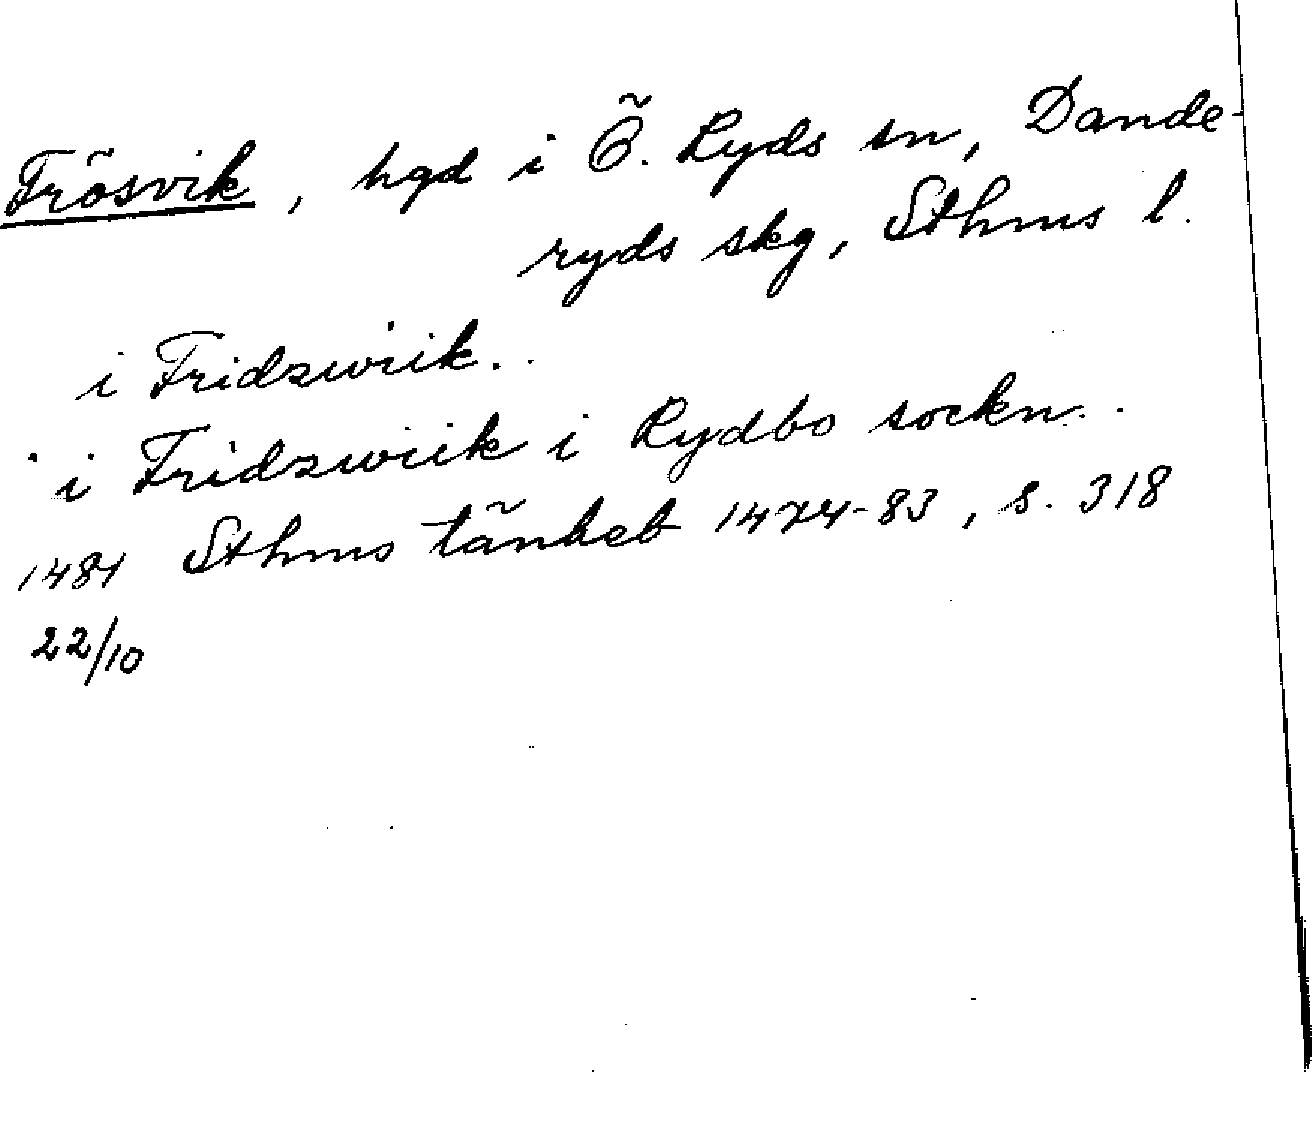 Frösvik, hgd i Ö. Ryds sn, Dande-
ryds skg, Sthms l.
i Fridzwiik.
i Fridzwiik i Rydbo sockn.
1481 Sthms tänkeb 1474-83, s. 318
22/10